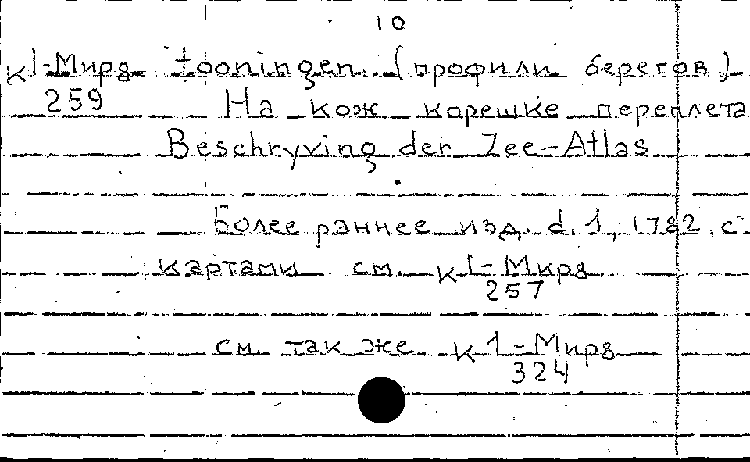 10
К1-Мир8 tooningen. (профили берегов)
259 На кож корешке переплета
Beschryving der Zee-Atlas
Более раннее изд. d. 1, 1782, с
картами см. К1-Мир8
257
см. так же К1-Мир8
324